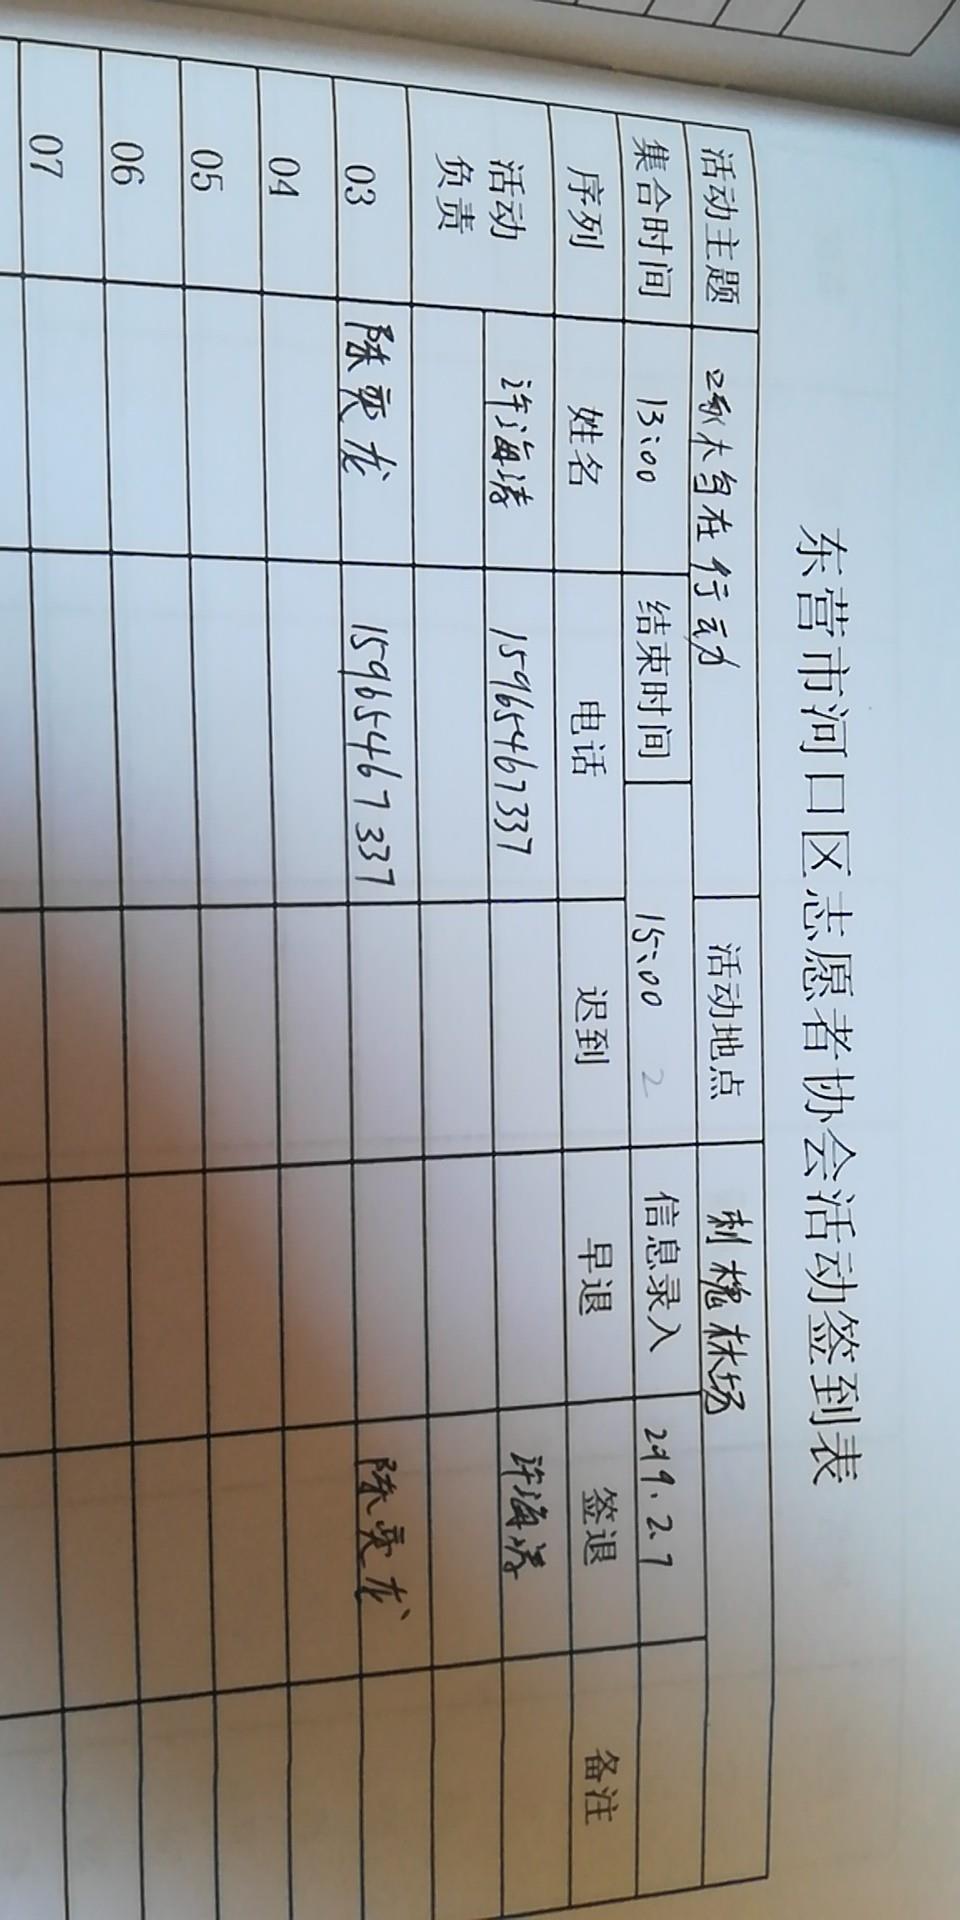 东营市河口区志愿者协会活动签到表
活动主题 啄木鸟在行动 活动地点 刺槐林场
集合时间 13:00 结束时间 15:00 2 信息录入 219.2.7
序列 姓名 电话 迟到 早退 签退 备注
活动负责 许海涛 15965467337 许海涛
03 陈奕龙 15965467337 陈奕龙
04
05
06
07